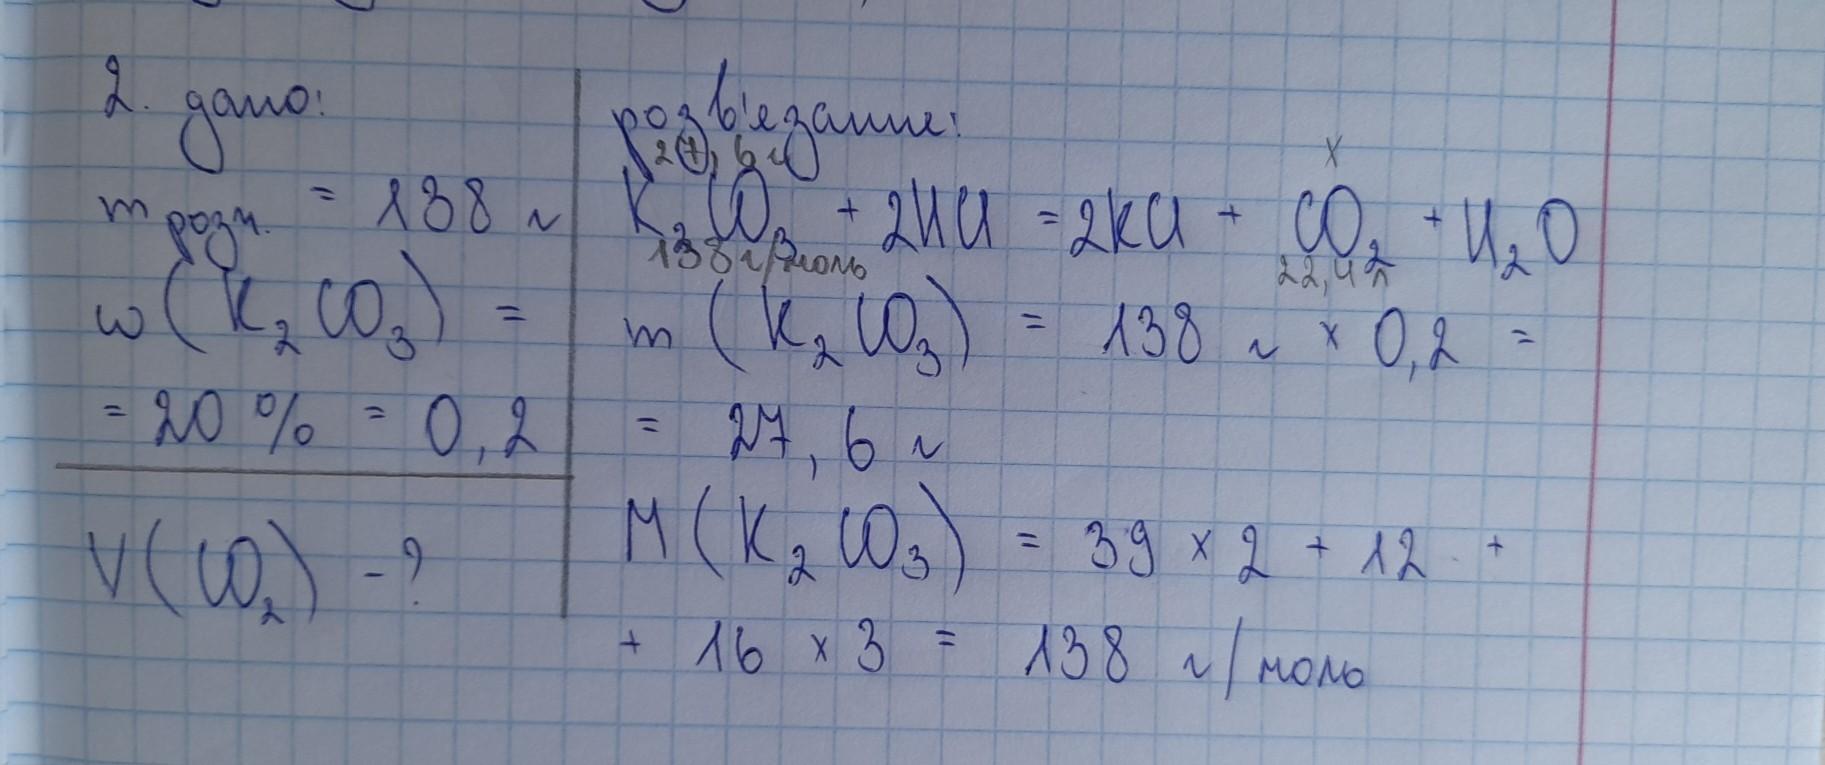 2. дано:
m розч. = 138 г
w (K₂CO₃) =
= 20 % = 0,2
V(CO₂) - ?
розв'язання:
27,6 г x
K₂CO₃ + 2HCl = 2KCl + CO₂ + H₂O
138 г/моль 22,4 л
m (K₂CO₃) = 138 г × 0,2 =
= 27,6 г
M (K₂CO₃) = 39 × 2 + 12 +
+ 16 × 3 = 138 г/моль